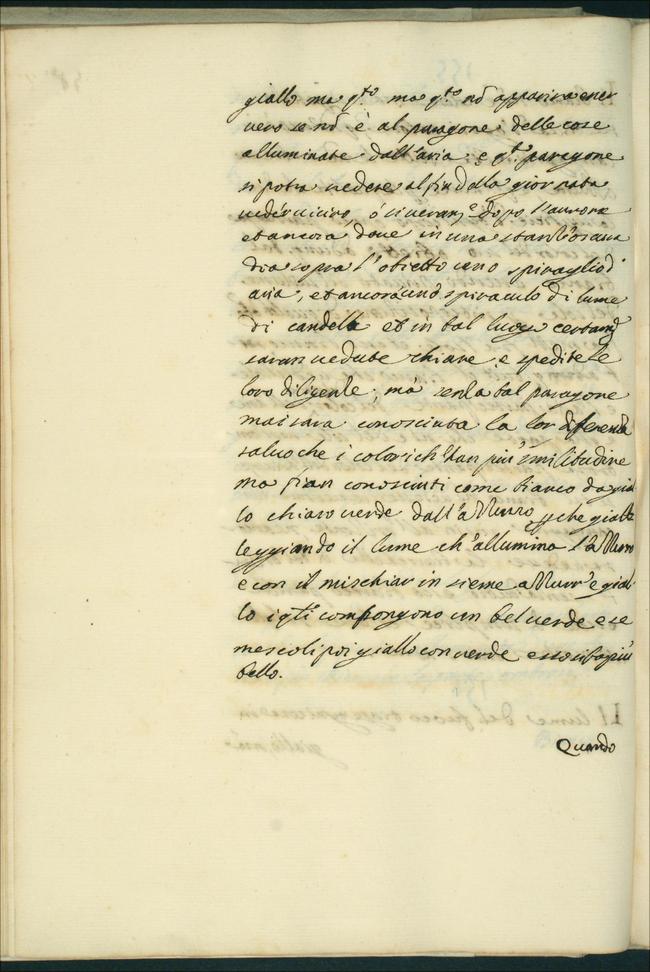 giallo ma q.to ma q.to nō apparirà esser
vero se nō è al paragone delle cose
alluminate dall'aria; e q.to paragone
si potrà vedere al fin della giornata
ò
dopo l'aurora
et ancora doue in una stanza oscura
dia sopra l'obietto uno spiraglio d'
aria, et ancora uno spiraculo di lume
di candella et in tal luogo certam.e
saran uedute chiare e spedite le
loro diligentie; mà senza tal paragone
mai sarà conosciuta la lor diferenza
saluo che i colori ch'han più similitudine
ma sian conosciuti come bianco da gial
lo chiaro uerde dall'azzurro p che gial
leggiando il lume ch'allumina l'azzurro
è con il mischiar in sieme azzurr'e gial
lo i q.ti compongono un bel uerde e se
mescoli poi giallo con uerde esso si fa più
bello.
Quando